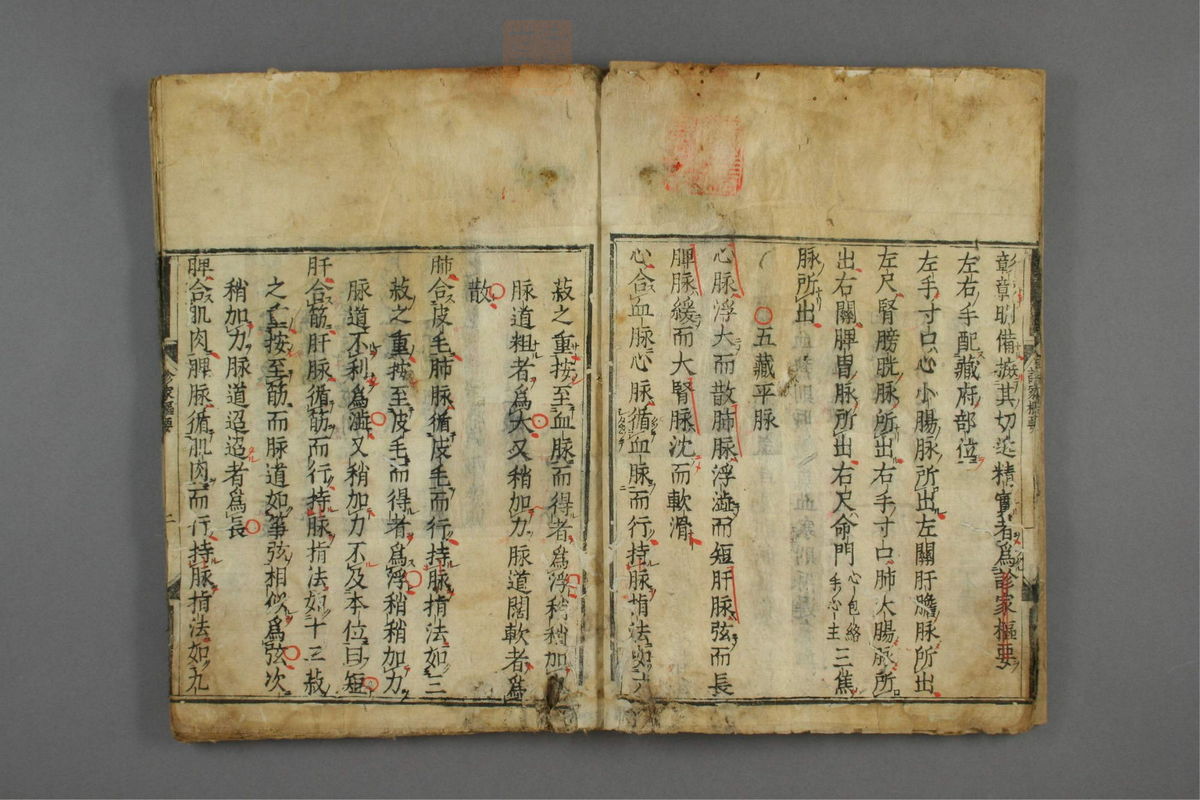 彰彰明備撼其切近精實者爲診家樞要
左右手配藏府部位
左手寸口心小腸脉所出左關肝膽脉所出
左尺腎膀胱脉所出右手寸口肺大腸脉所
出右關脾胃脉所出右尺命門心包絡手心主三焦
脉所出
○五藏平脉
心脉浮大而散肺脉浮澁而短肝脉弦而長
脾脉緩而大腎脉沈而軟滑
心合血脉心脉循血脉而行持脉指法如六
菽之重按至血脉而得者爲浮稍稍加
脉道粗者爲大又稍加力脉道闊軟者爲
散
肺合皮毛肺脉循皮毛而行持脉指法如三
菽之重按至皮毛而得者爲浮稍稍加力
脉道不利爲澁又稍加力不及本位曰短
肝合筋肝脉循筋而行持脉指法如十二菽
之重按至筋而脉道如筝弦相似爲弦次
稍加力脉道迢迢者爲長
脾合肌肉脾脉循肌肉而行持脉指法如九